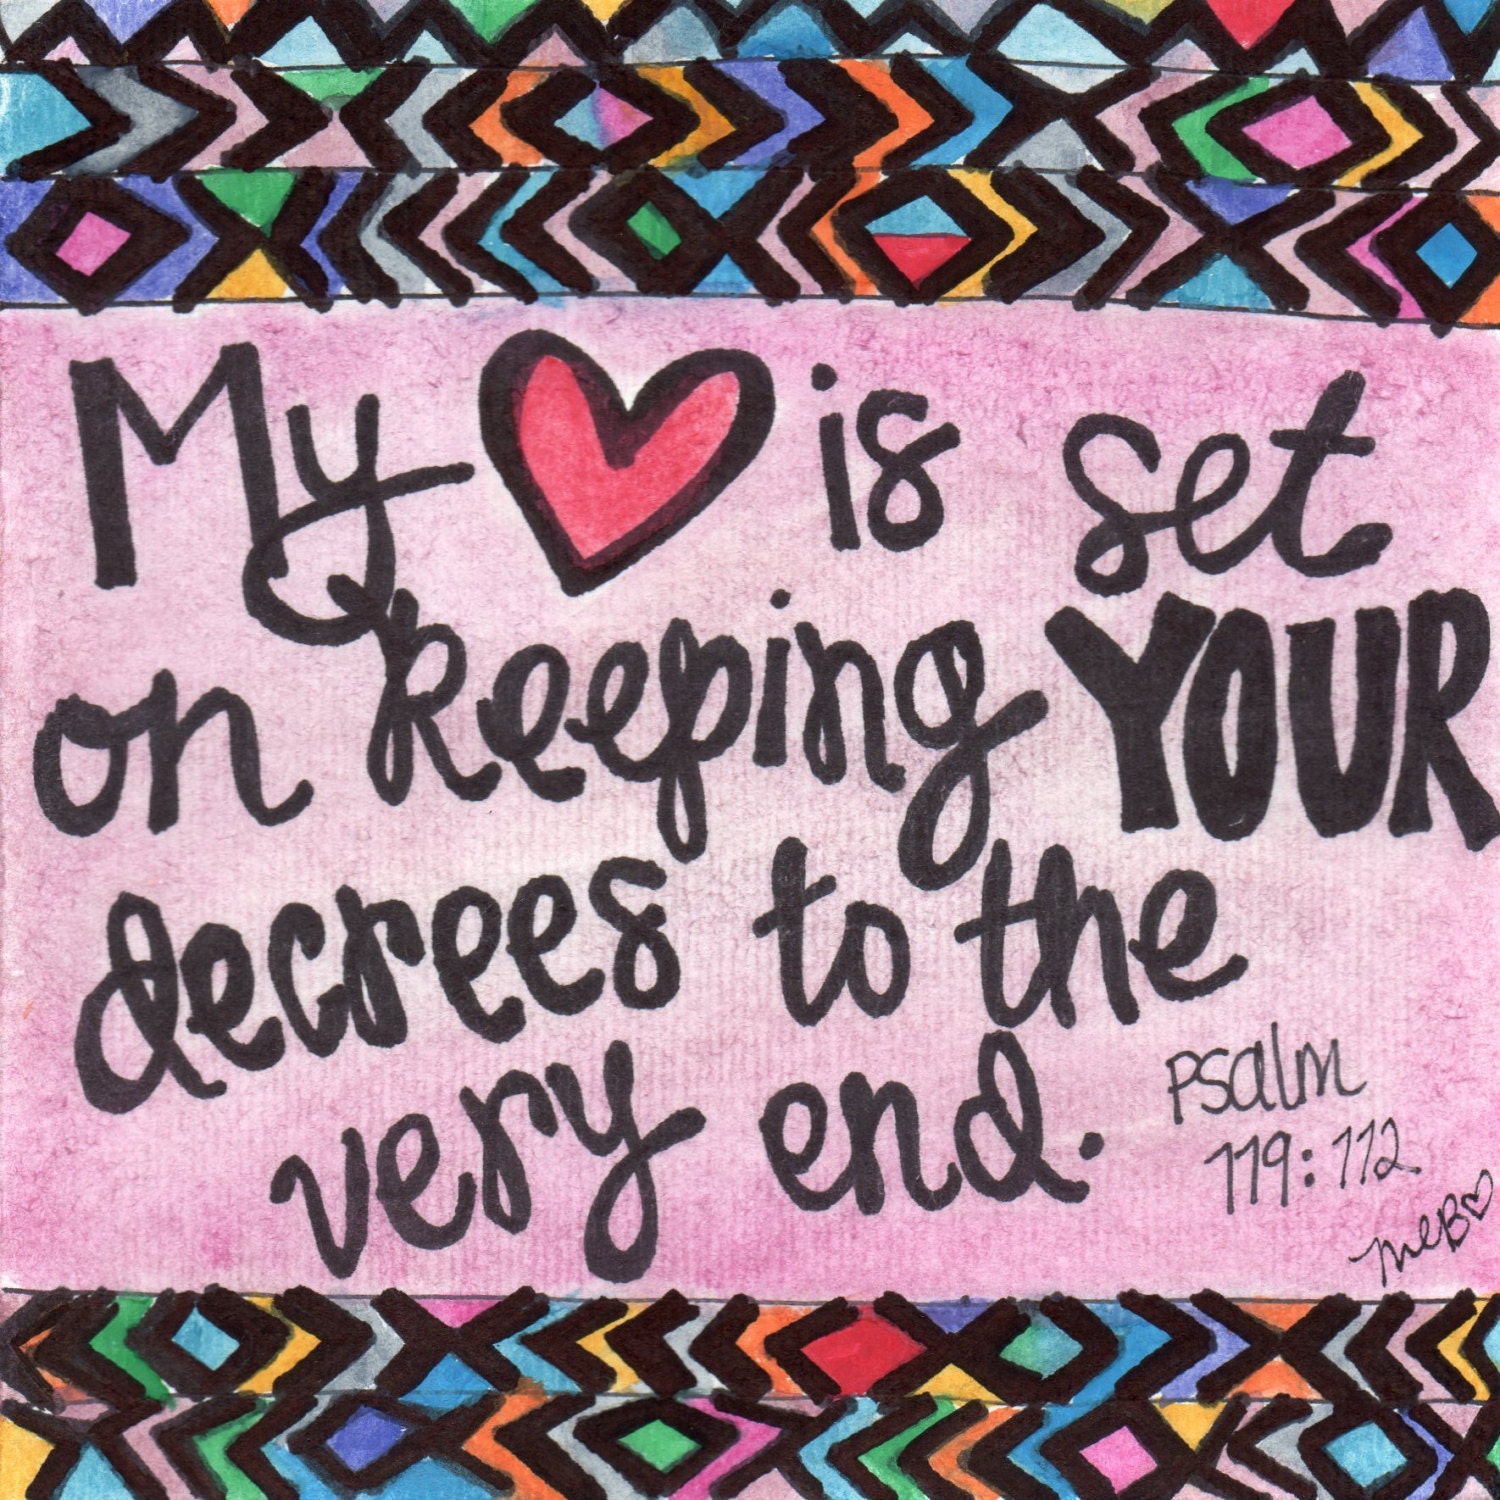 My ❤ is set
on keeping YOUR
decrees to the
very end.
psalm
119:112
MEB♡